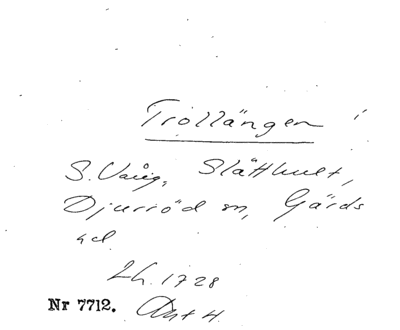 Trollängen i
S. Vång, Slätthult,
Djurröd sn, Gärds
hd
Lh. 1728
Nr 7712.